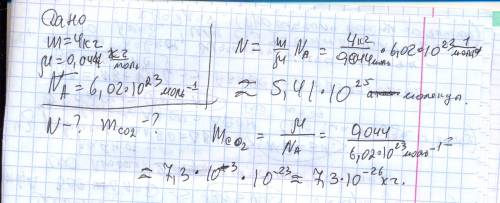 Дано
m = 4 кг
μ = 0,044 кг/моль
N_A = 6,02·10²³ моль⁻¹
N - ? m_CO2 - ?
N = m/μ N_A = 4кг/0,044 · 6,02·10²³ 1/моль
≈ 5,41·10²⁵ молекул.
m_CO2 = μ/N_A = 0,044/6,02·10²³ моль⁻¹ =
≈ 7,3·10⁻³·10⁻²³ ≈ 7,3·10⁻²⁶ кг.